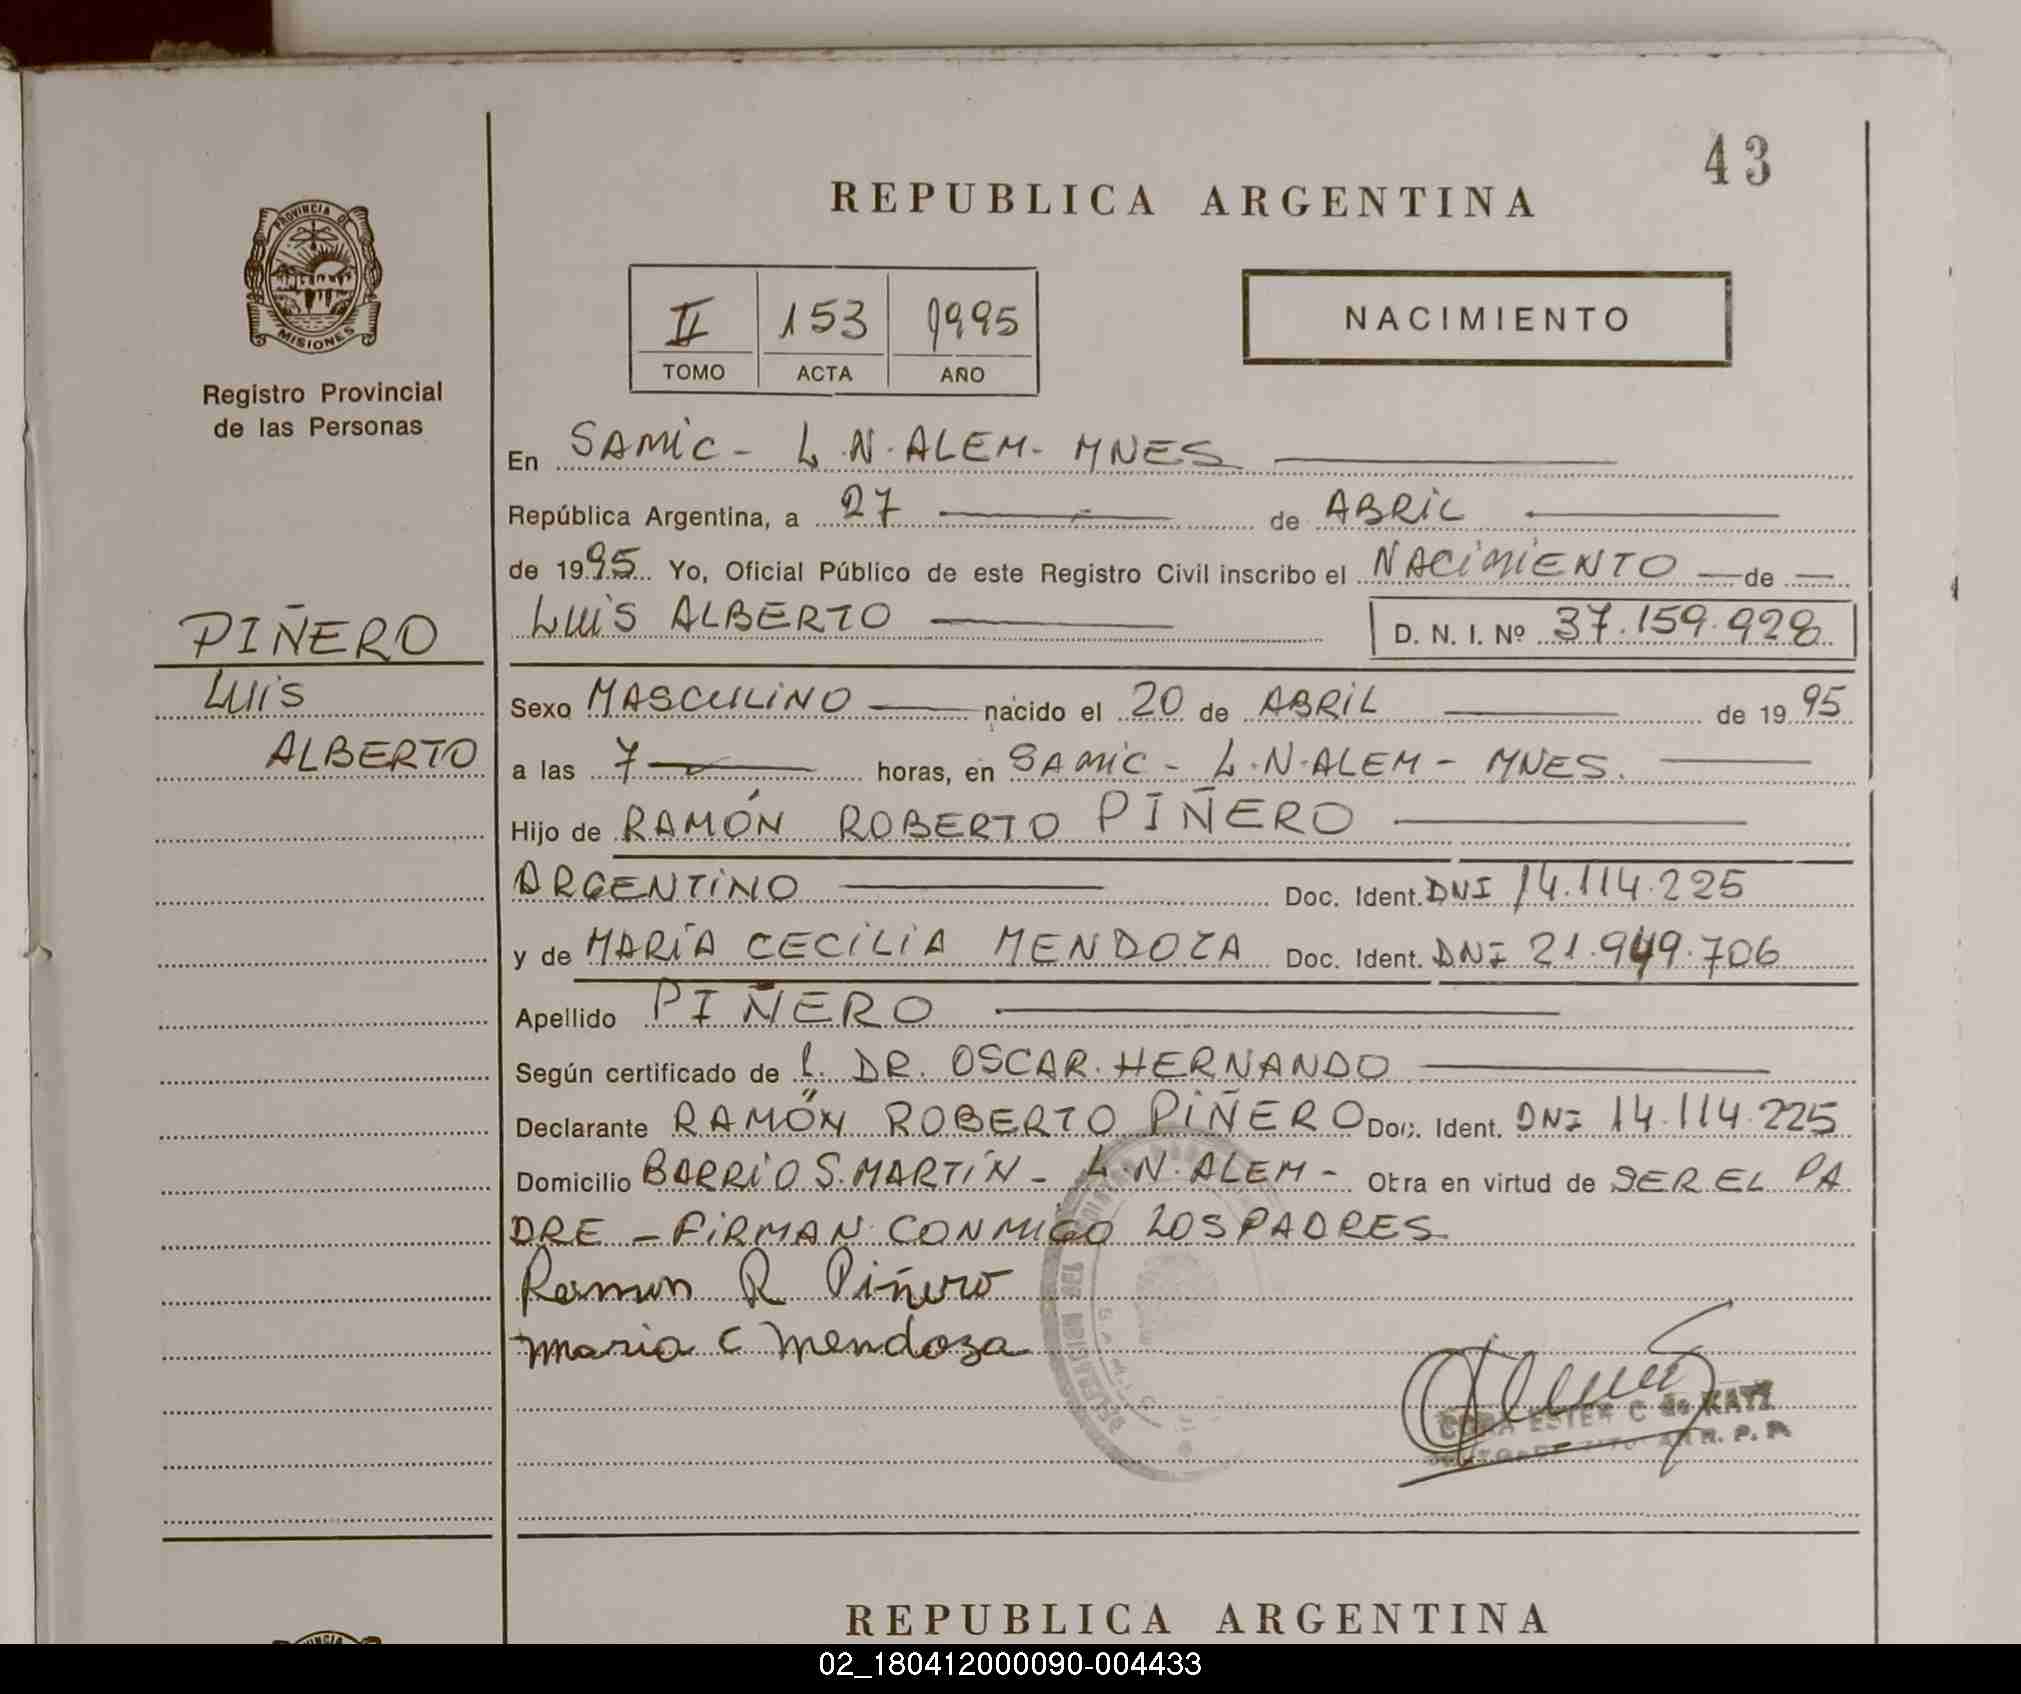 43
REPUBLICA ARGENTINA
PROVINCIA DE
MISIONES
Registro Provincial
de las Personas
II 153 1995
TOMO ACTA AÑO
NACIMIENTO
En SAMIC - L.N.ALEM - MNES
República Argentina, a 27 de ABRIL
de 1995 Yo, Oficial Público de este Registro Civil inscribo el NACIMIENTO de
LUIS ALBERTO D. N. I. Nº 37.159.928
PIÑERO
LUIS
ALBERTO
Sexo MASCULINO nacido el 20 de ABRIL de 1995
a las 7 horas, en SAMIC - L.N.ALEM - MNES.
Hijo de RAMÓN ROBERTO PIÑERO
ARGENTINO Doc. Ident. DNI 14.114.225
y de MARÍA CECILIA MENDOZA Doc. Ident. DNI 21.949.706
Apellido PIÑERO
Según certificado de l. DR. OSCAR HERNANDO
Declarante RAMÓN ROBERTO PIÑERO Doc. Ident. DNI 14.114.225
Domicilio BARRIO S. MARTÍN - L.N.ALEM - Otra en virtud de SER EL PA
DRE - FIRMAN CONMIGO LOS PADRES
Ramon R Piñero
Maria C Mendoza
CORA ESTER C de KATZ
R. P. P.
REPUBLICA ARGENTINA
02_180412000090-004433